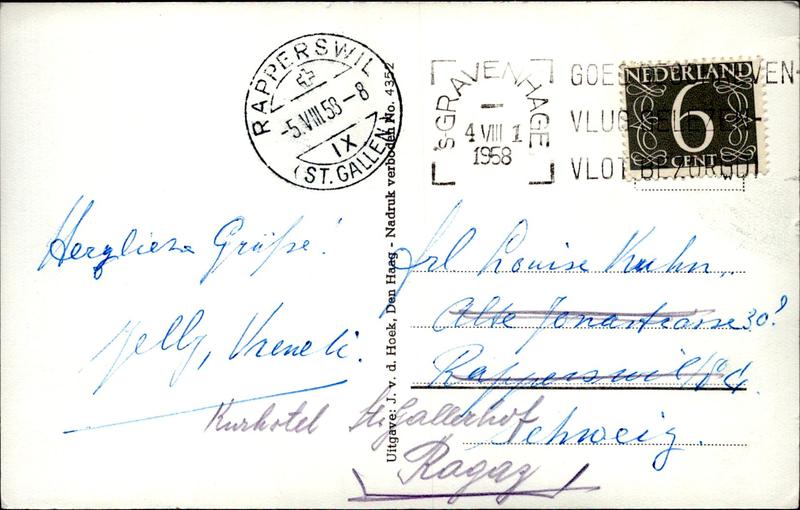 RAPPERSWIL
-5.VIII.58-8
IX
(ST. GALLEN)
's-GRAVENHAGE
4 VIII 1
1958
VLOT BEZORGD
NEDERLAND
6
CENT
Herzliche Grüsse!
Nelly, Vreneli.
Uitgave: J. v. d. Hoek, Den Haag - Nadruk verboden No. 4352
Frl Louise Kuhn,
Alte Jonastrasse 30?
Rapperswil/
Schweiz.
Kurhotel St. Gallerhof
Ragaz